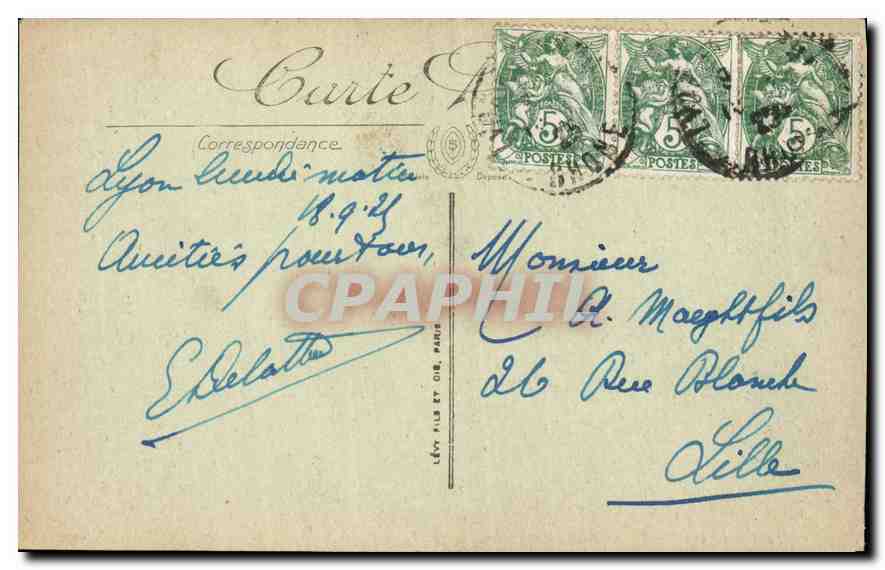 Carte
Correspondance
5
Lyon lundi matin
18.9.25
Amitiés pour tous,
E Delattre
LÉVY FILS ET CIE, PARIS
5
POSTES
5
POSTES
5
POSTES
RHONE
Monsieur
A. Maeght fils
26 Rue Blanche
Lille
CPAPHIL